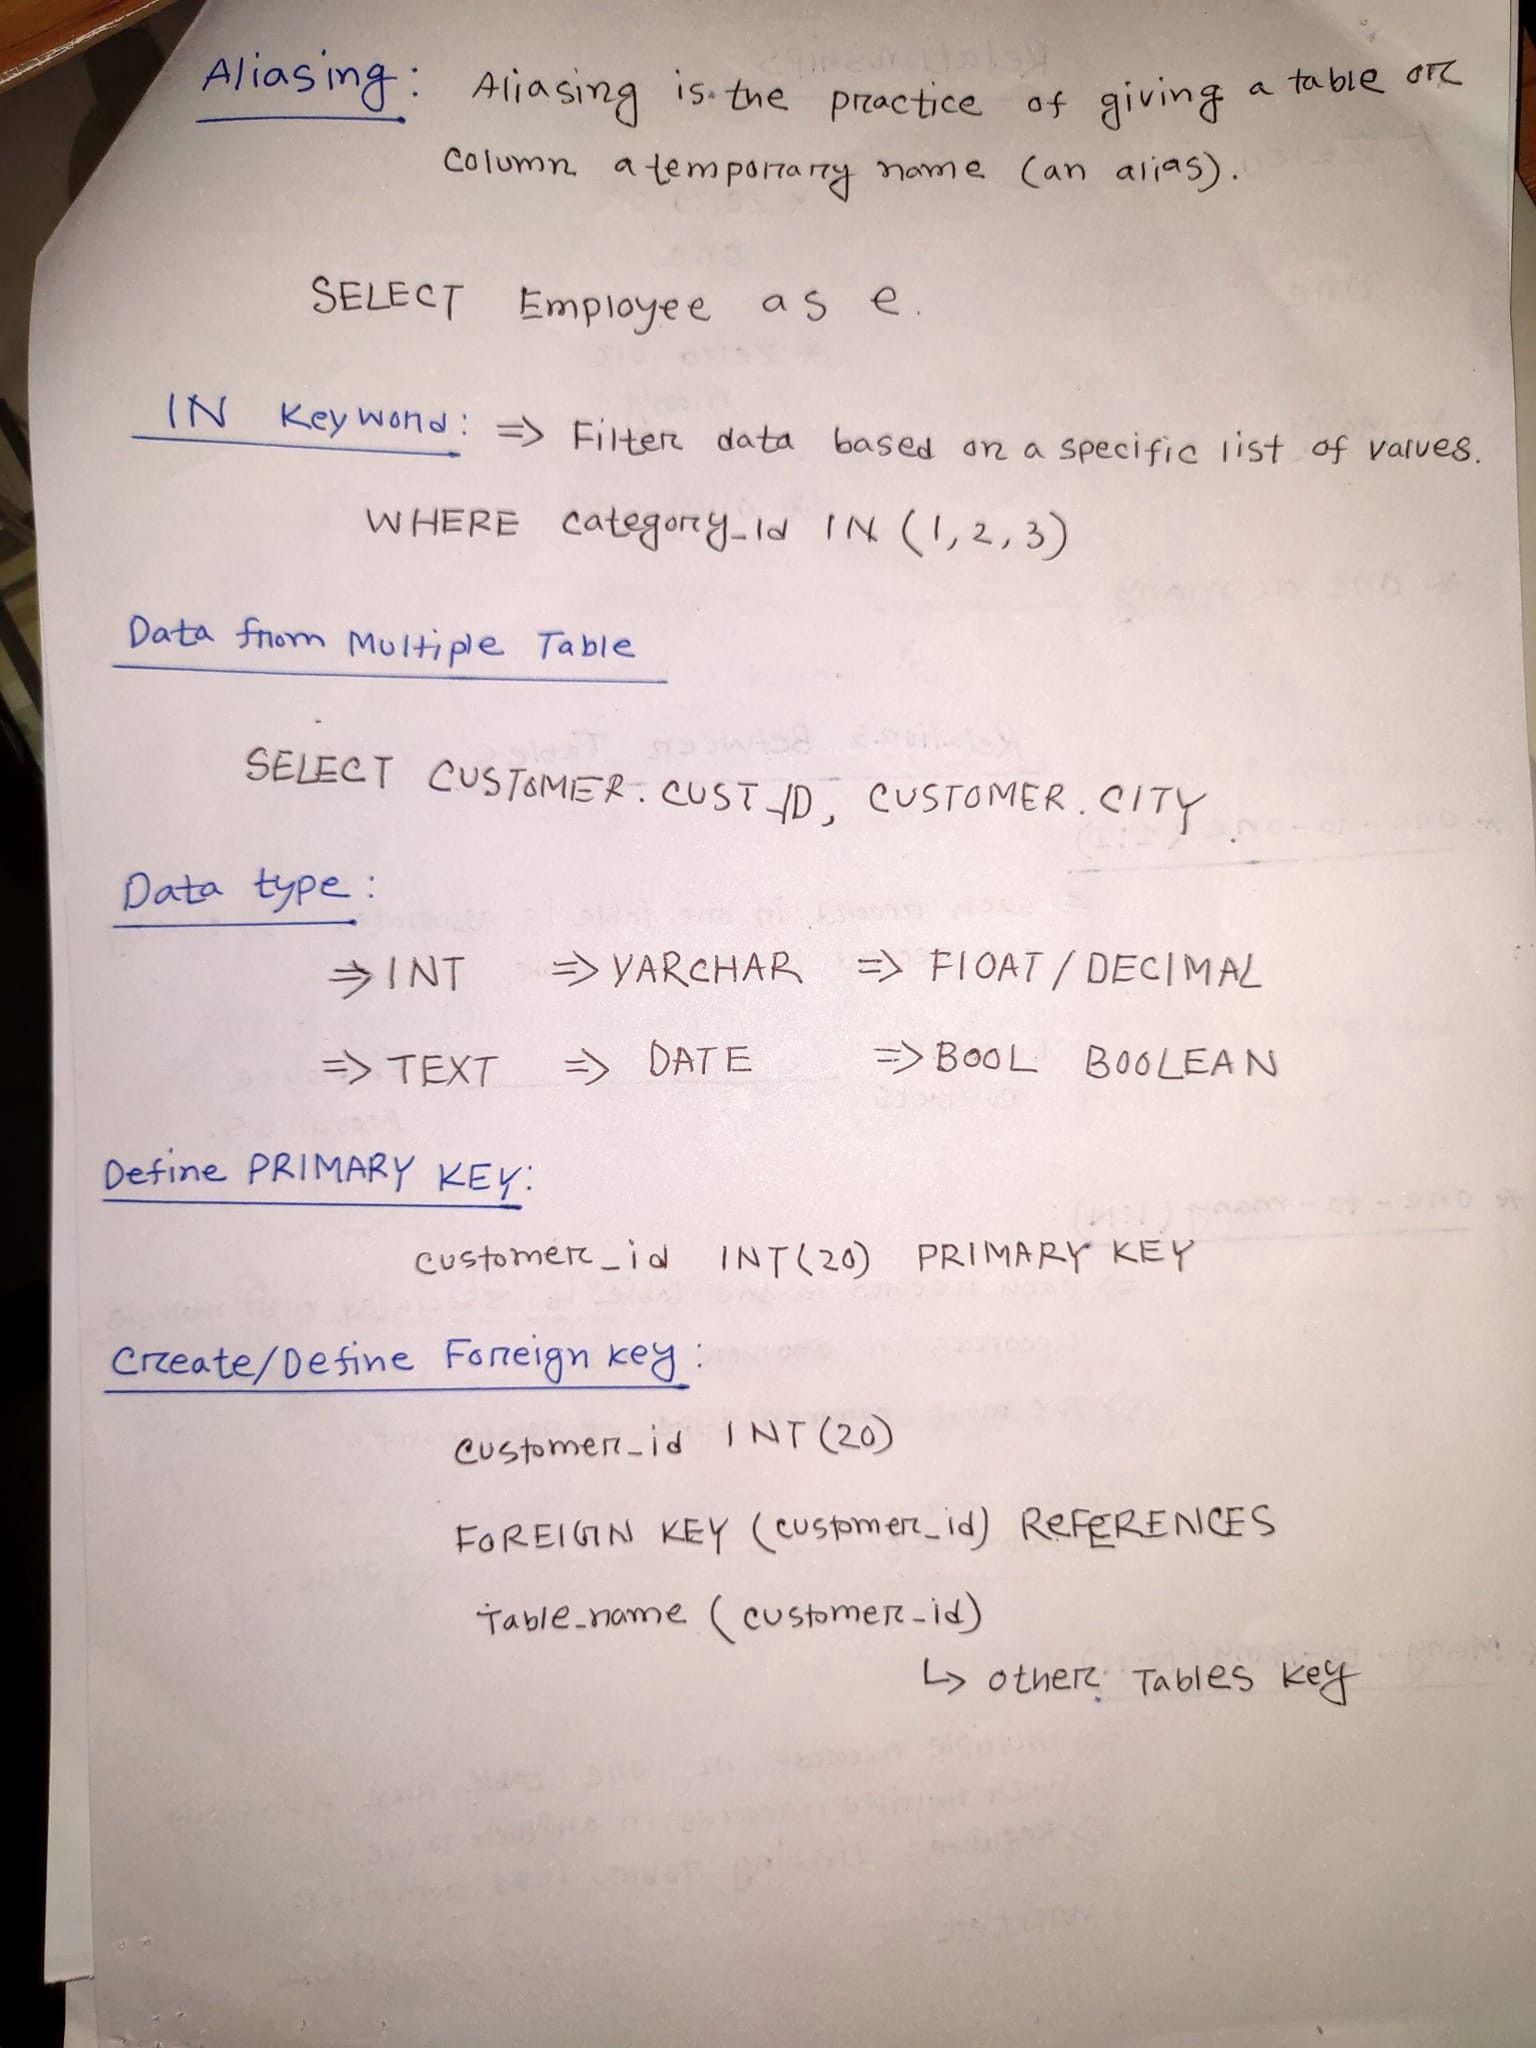 Aliasing: Aliasing is the practice of giving a table or
column a temporary name (an alias).
SELECT Employee as e.
IN Keyword: => Filter data based on a specific list of values.
WHERE category_id IN (1, 2, 3)
Data from Multiple Table
SELECT CUSTOMER.CUST_ID, CUSTOMER.CITY
Data type:
=> INT => VARCHAR => FlOAT / DECIMAL
=> TEXT => DATE => BOOL BOOLEAN
Define PRIMARY KEY:
customer_id INT(20) PRIMARY KEY
Create/Define Foreign key:
customer_id INT(20)
FOREIGN KEY (customer_id) REFERENCES
Table_name (customer_id)
↳ other Tables key